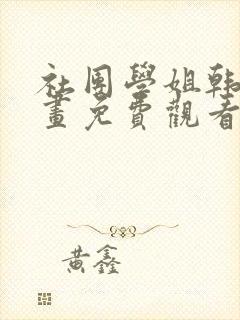 社團學姐韩
畫免費觀看
黄鑫